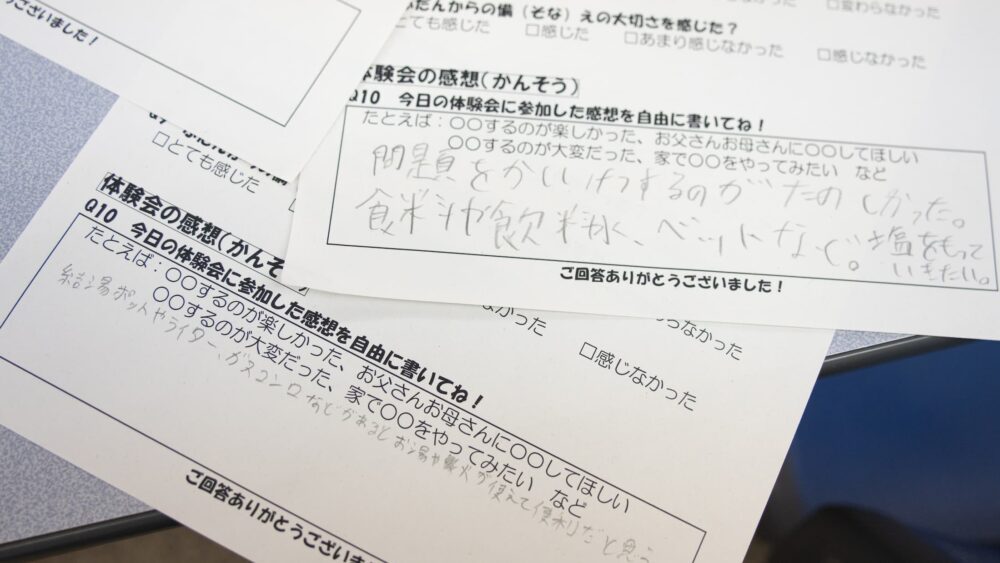 ございました！
だんからの備（そな）えの大切さを感じた？
とても感じた
□感じた
□あまり感じなかった
□感じなかった
□変わらなかった
体験会の感想（かんそう）
Q10 今日の体験会に参加した感想を自由に書いてね！
たとえば：〇〇するのが楽しかった、お父さんお母さんに〇〇してほしい
〇〇するのが大変だった、家で〇〇をやってみたい など
問題をかいけつするのがたのしかった。
食料や飲料水、ベットなど。塩をもって
いきたい。
ご回答ありがとうございました！
□とても感じた
なかった
らなかった
□感じなかった
体験会の感想（かんそ
Q10 今日の体験会に参加した感想を自由に書いてね！
たとえば：〇〇するのが楽しかった、お父さんお母さんに〇〇してほしい
〇〇するのが大変だった、家で〇〇をやってみたい など
給湯ポットやライター、ガスコンロなどがあるとお湯や火が使えて便利だと思う
ご回答ありがとうございま